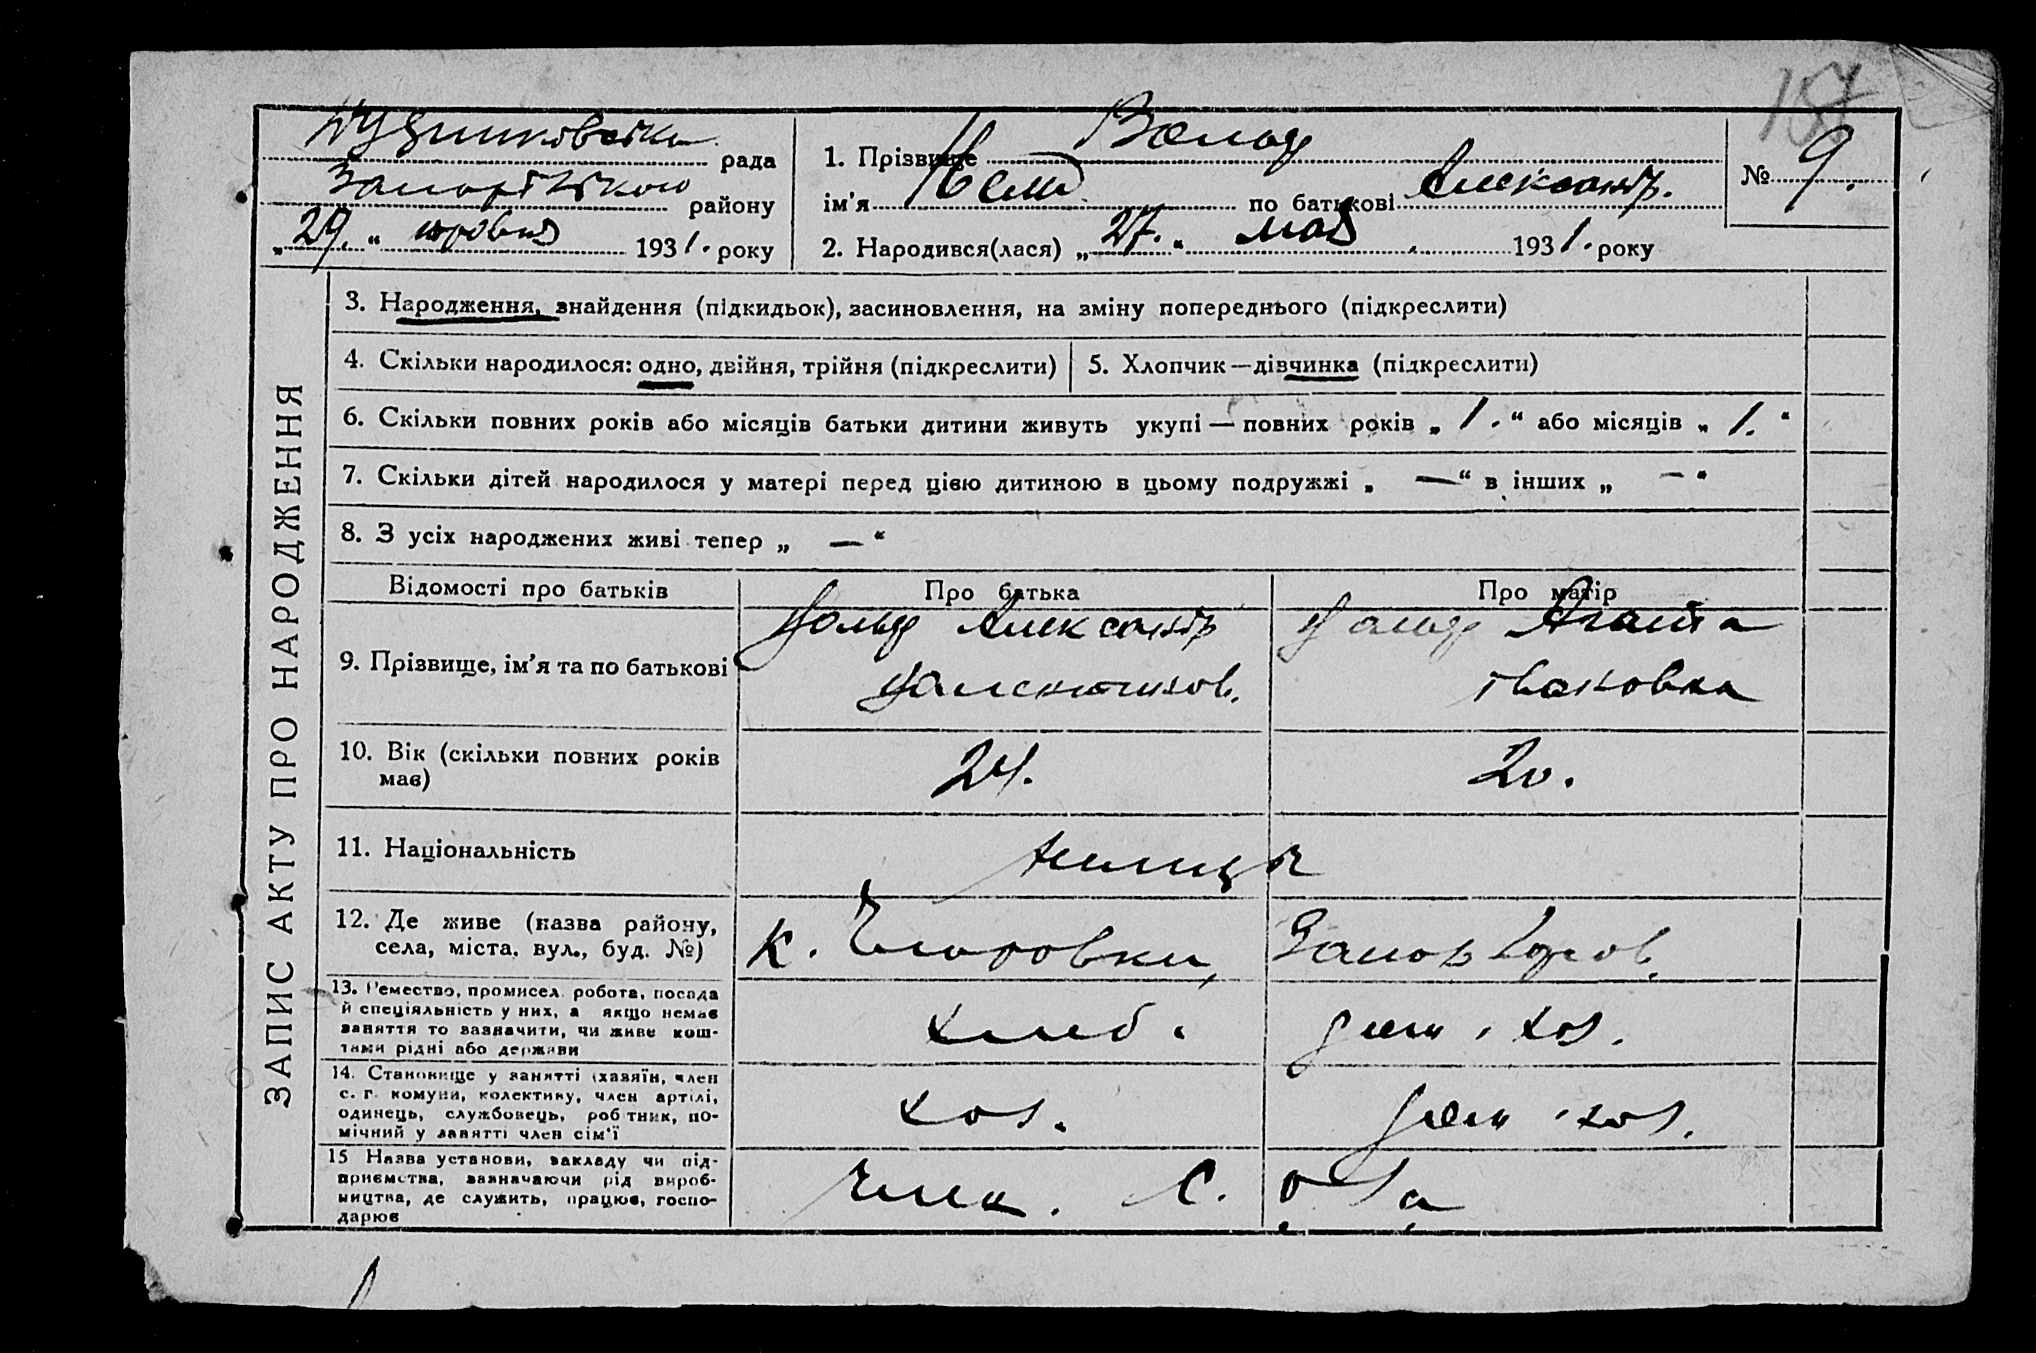 рада
району
„ 29. “ 1931. року
1. Прізвище Вольф
ім'я по батькові Александр.
2. Народився(лася) „ 27. “ мая 1931. року
№ 9.
ЗАПИС АКТУ ПРО НАРОДЖЕННЯ
3. Народження, знайдення (підкидьок), засиновлення, на зміну попереднього (підкреслити)
4. Скільки народилося: одно, двійня, трійня (підкреслити)
5. Хлопчик—дівчинка (підкреслити)
6. Скільки повних років або місяців батьки дитини живуть укупі — повних років „ 1. “ або місяців „ 1. “
7. Скільки дітей народилося у матері перед цією дитиною в цьому подружжі „ — “ в інших „ — “
8. З усіх народжених живі тепер „ — “
Відомості про батьків Про батька Про матір
9. Прізвище, ім'я та по батькові
Вольф Александр Вольф Агата
Валентинов.
10. Вік (скільки повних років
має)
24. 20.
11. Національність
12. Де живе (назва району,
села, міста, вул., буд. №)
к.
13. Ремество, промисел, робота, посада
й спеціяльність у них, а якщо немає
заняття то зазначити, чи живе кош-
тами рідні або держави
хлеб. дом. хоз.
14. Становище у занятті (хазяїн, член
с. г. комуни, колективу, член артілі,
одинець, службовець, робітник, по-
мічний у занятті член сім'ї
хоз. дом. хоз.
15 Назва установи, закладу чи під-
приємства, зазначаючи рід вироб-
ництва, де служить, працює, госпо-
дарює